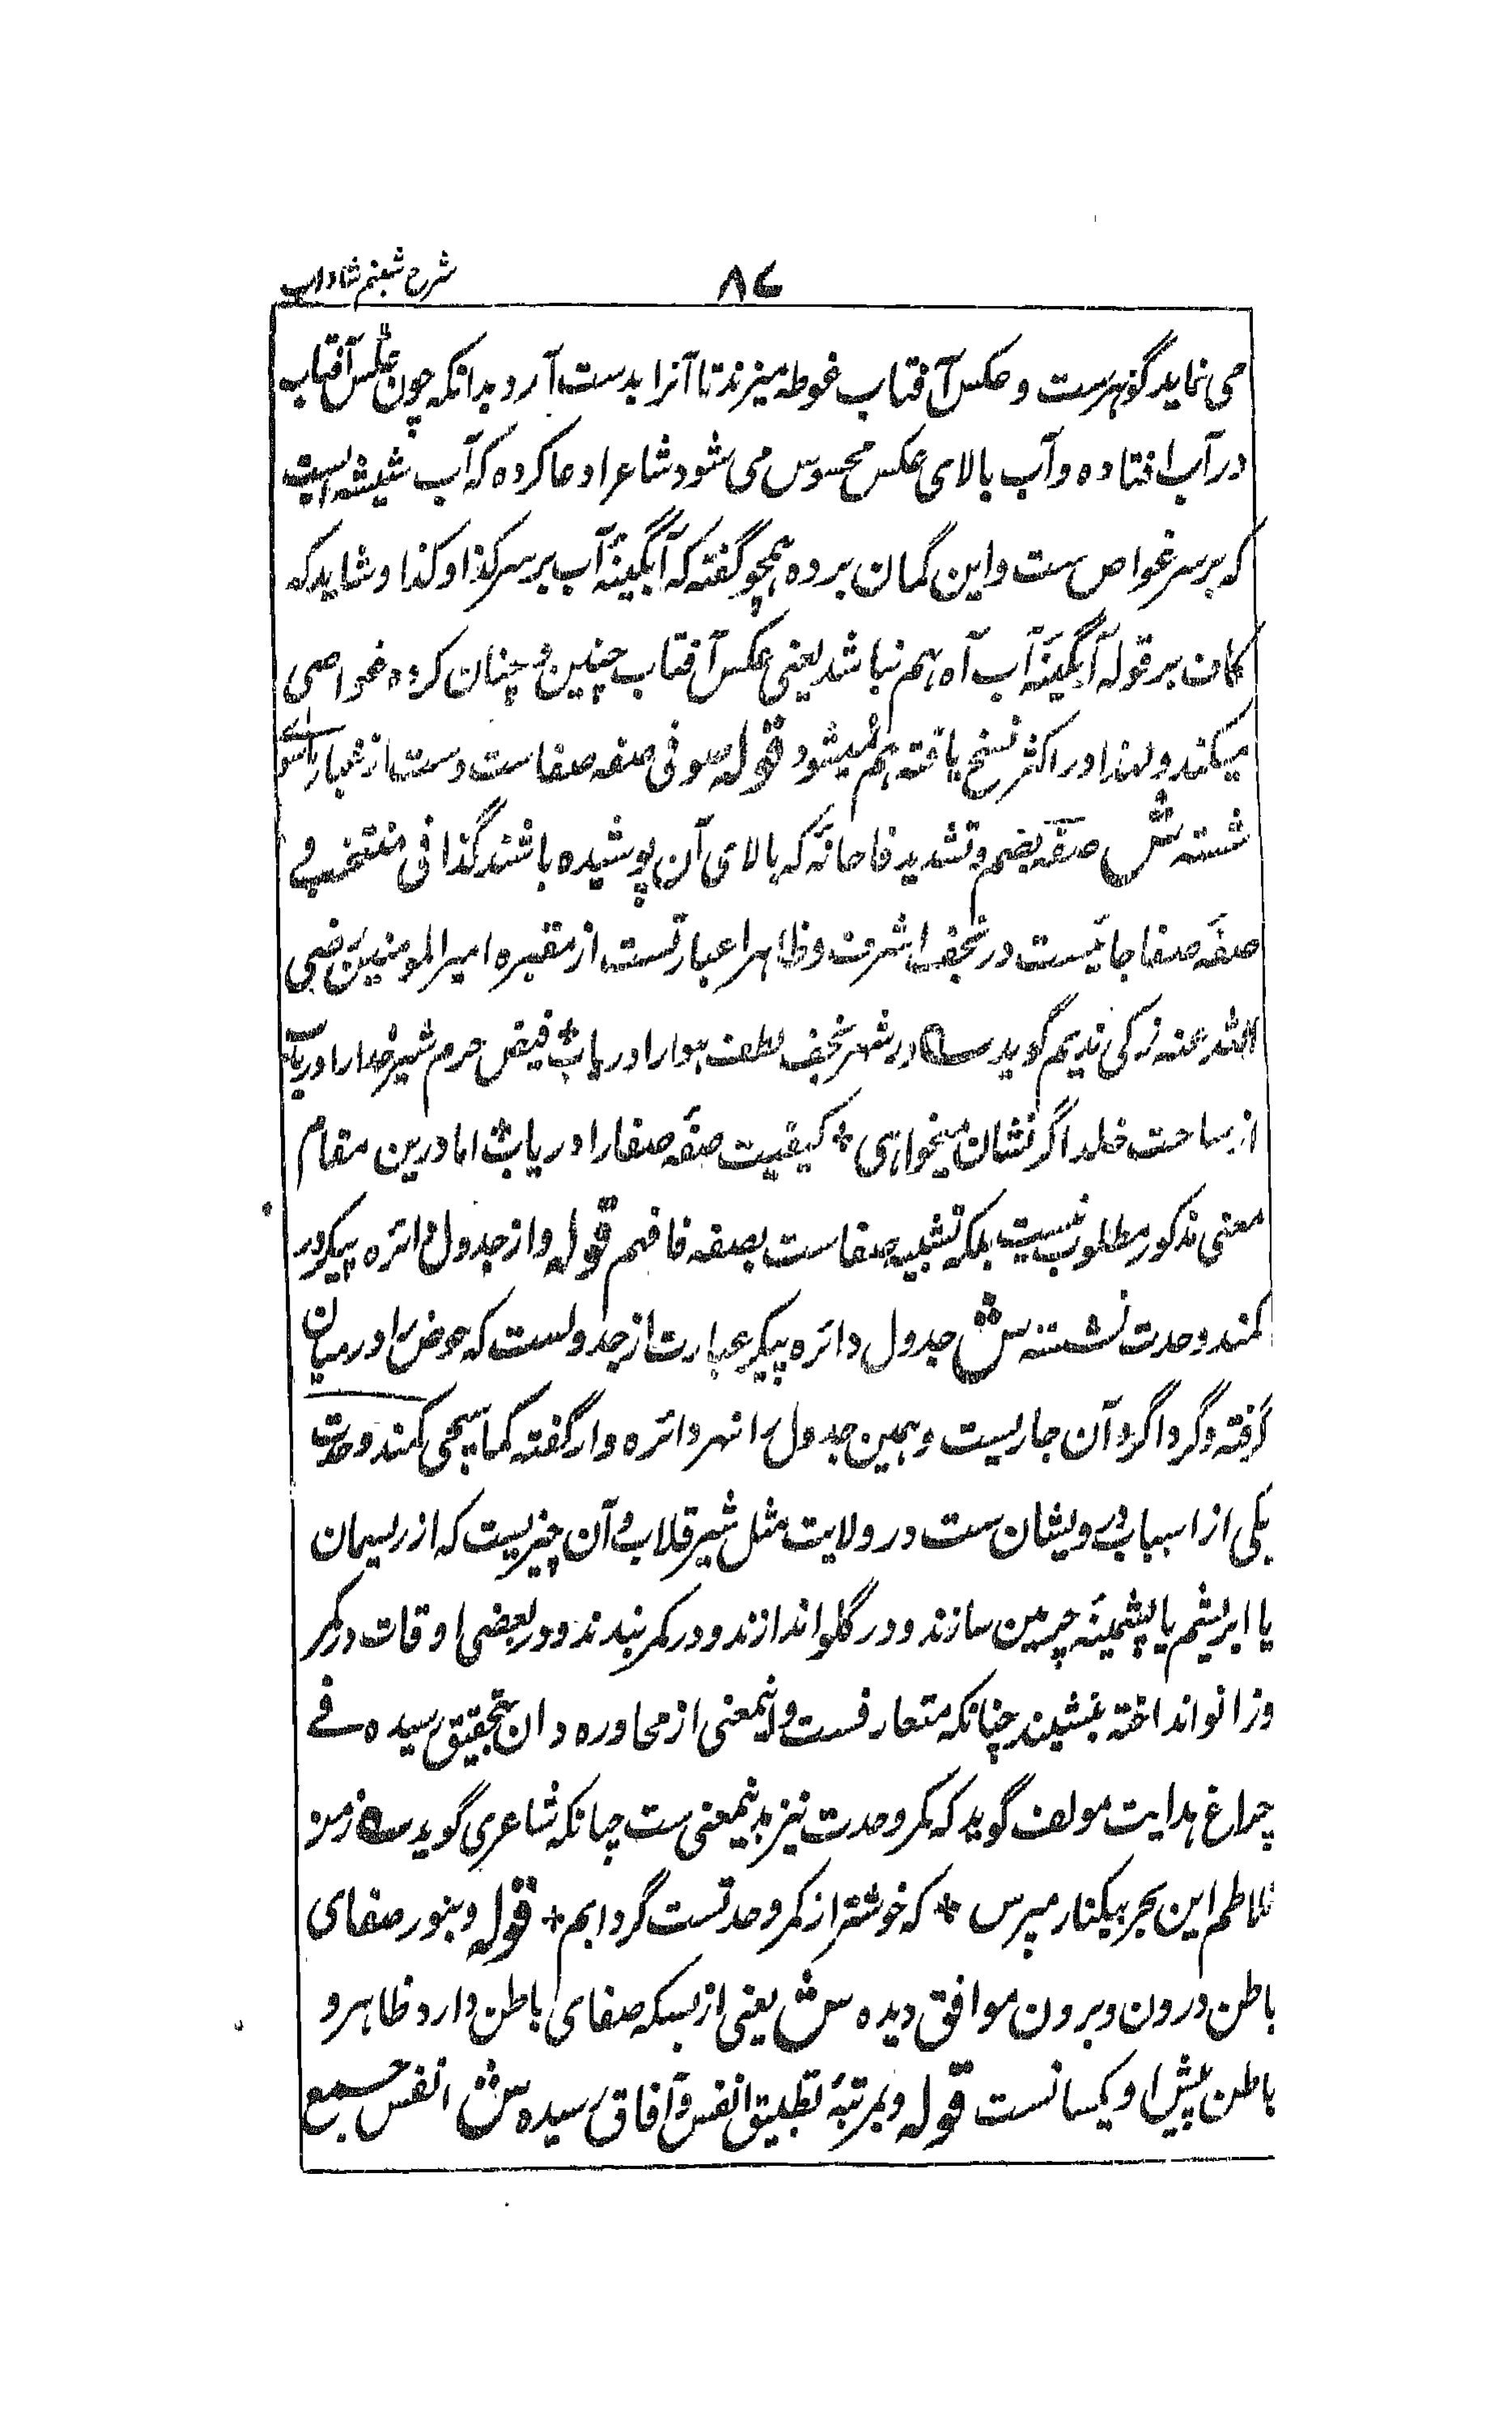 شرح شبنم شاداب
۸۷
می نماید گوہرست و عکس آفتاب غوطہ میزند تا آنرا بدست آرد بدانکہ چون عکس آفتاب
در آب افتادہ و آب بالای عکس محسوس می شود شاعر ادعا کردہ کہ آب شیشہ است
کہ بر سر غواص ست و این گمان بردہ ہمچو گفتہ کہ آبگینۂ آب بر سر کذا و کذا و شاید کہ
کاف بر قولہ آبگینۂ آب آہ ہم نباشد یعنی عکس آفتاب چنین و چنان کردہ غواصی
میکند و لہذا در اکثر نسخ یافتہ ہم نمیشود قولہ صوفی صفہ صفاست دست از غبار
شستہ ش صفہ بضم و تشدید فا خانۂ کہ بالای آن پوشیدہ باشند کذا فی منتخب و
صفۂ صفا جائیست در نجف اشرف و ظاہرا عبارتست از مقبرہ امیر المومنین رضی
اللہ عنہ زکی ندیم گوید ؎ در شہر نجف لطف ہوا را دریاب * فیض حرم شیر خدا را دریاب
از ساحت خلد اگر نشان میخواہی * کیفیت صفۂ صفا را دریاب * اما درین مقام
معنی مذکور مطلوب نیست بلکہ تشبیہ صفاست بصفہ فافہم قولہ و از جدول دائرہ پیکر در
کمند وحدت نشستہ ش جدول دائرہ پیکر عبارت از جدولست کہ حوض را درمیان
گرفتہ و گرداگرد آن جاریست و ہمین جدول را نہر دائرہ وار گفتہ کما سیجی کمند وحدت
یکی از اسباب درویشان ست در ولایت مثل شیر قلاب و آن چیزیست کہ از ریسمان
یا ابریشم یا پشمینہ چرمین سازند و در گلو اندازند و در کمر بندند و در بعضی اوقات در کمر
و زانو انداختہ بنشینند چنانکہ متعارفست و اینمعنی از محاورہ دان بتحقیق رسیدہ فی
چراغ ہدایت مولف گوید کہ کمر وحدت نیز بدینمعنی ست چنانکہ شاعری گوید ؎ ز من
تلاطم این بحر بیکنار مپرس * کہ خوشتر از کمر وحدتست گردابم * قولہ و بنور صفای
باطن درون و برون موافق دیدہ ش یعنی از بسکہ صفای باطن دارد ظاہر و
باطن پیش او یکسانست قولہ و بمرتبۂ تطبیق انفس و آفاق رسیدہ ش انفس جمیع